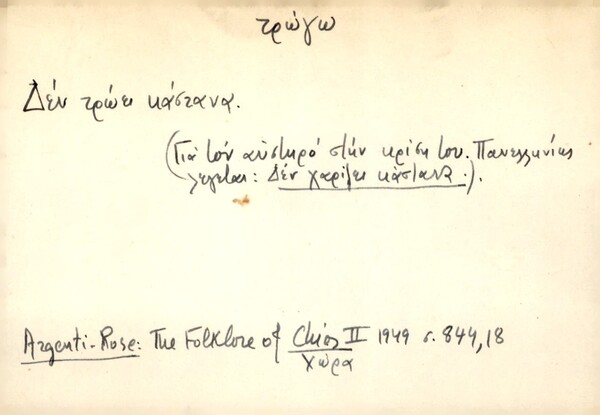 τρώγω
Δέν τρώει κάστανα.
(Γιά τόν αὐστηρό στήν κρίση του. Πανελληνίως
λέγεται: Δέν χαρίζει κάστανα.).
Argenti-Rose: The Folklore of Chios II 1949 σ. 844,18
χώρα